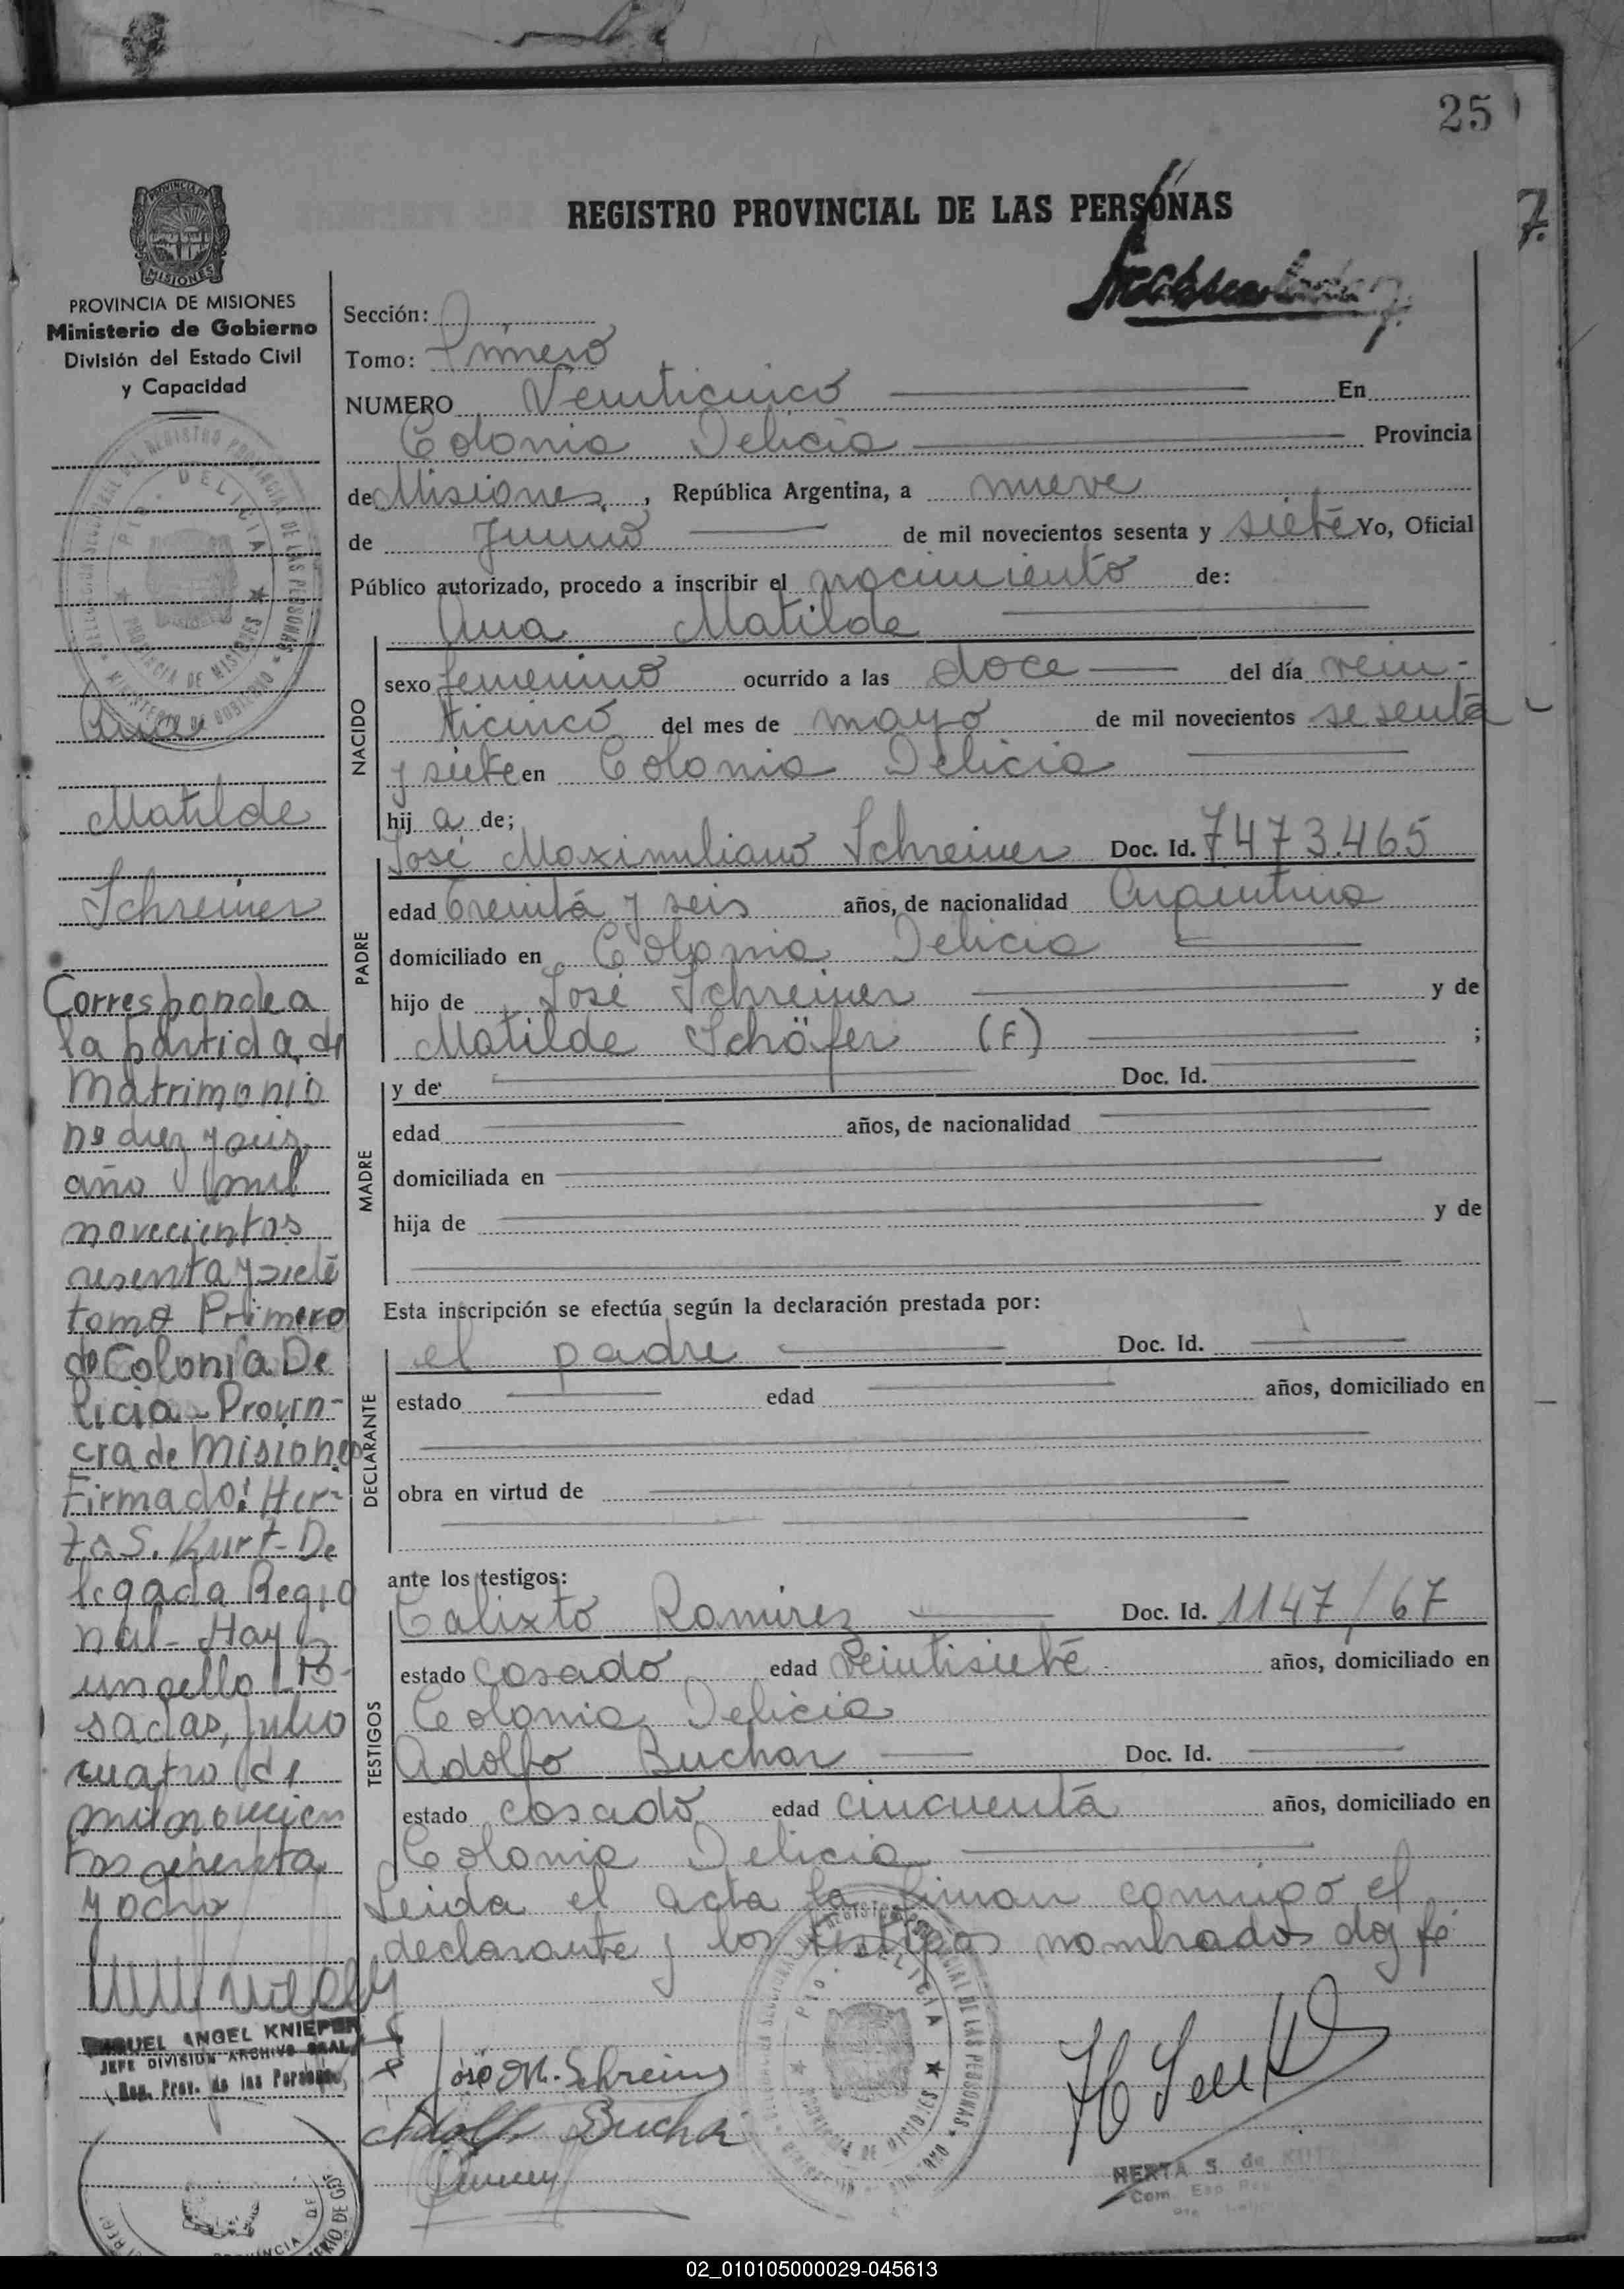 25
REGISTRO PROVINCIAL DE LAS PERSONAS
7.
PROVINCIA DE MISIONES
Ministerio de Gobierno
División del Estado Civil
y Capacidad
Ana
Matilde
Schreiner
Corresponde a
la partida de
Matrimonio
nº diez y seis,
año mil
novecientos
sesenta y siete
tomo Primero
de Colonia De
licia - Provin-
cia de Misiones
Firmado: Her-
ta S. Kurt - De
legada Regio
nal - Hay
un sello Po-
sadas, Julio
cuatro de
mil novecien
tos setenta
y ocho
MIGUEL ANGEL KNIEPER
JEFE DIVISION ARCHIVO GRAL.
Reg. Prov. de las Personas
Sección:
Tomo: Primero
NUMERO Veinticinco En
Colonia Delicia Provincia
de Misiones, República Argentina, a nueve
de Junio de mil novecientos sesenta y siete Yo, Oficial
Público autorizado, procedo a inscribir el nacimiento de:
Ana Matilde
NACIDO
sexo femenino ocurrido a las doce del día vein-
ticinco del mes de mayo de mil novecientos sesenta
y siete en Colonia Delicia
hij a de;
PADRE
José Maximiliano Schreiner Doc. Id. 7473.465
edad treinta y seis años, de nacionalidad Argentina
domiciliado en Colonia Delicia
hijo de José Schreiner y de
Matilde Schäfer (F) ;
MADRE
y de Doc. Id.
edad años, de nacionalidad
domiciliada en
hija de y de
Esta inscripción se efectúa según la declaración prestada por:
DECLARANTE
el padre Doc. Id.
estado edad años, domiciliado en
obra en virtud de
ante los testigos:
TESTIGOS
Calixto Ramirez Doc. Id. 1147/67
estado casado edad veintisiete años, domiciliado en
Colonia Delicia
Adolfo Buchar Doc. Id.
estado casado edad cincuenta años, domiciliado en
Colonia Delicia
Leida el acta la firman conmigo el
declarante y los testigos nombrados doy fé
José M. Schreiner
Adolfo Buchar
HERTA S. de
02_010105000029-045613